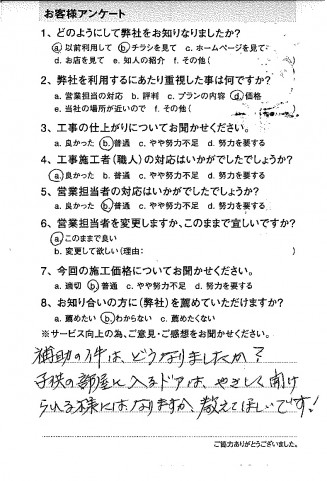 お客様アンケート
1、どのようにして弊社をお知りなりましたか?
a.以前利用して b.チラシを見て c.ホームページを見て
d.お店を見て e.知人の紹介 f.その他( )
2、弊社を利用するにあたり重視した事は何ですか?
a.営業担当の対応 b.評判 c.プランの内容 d.価格
e.当社の場所が近いので f.その他( )
3、工事の仕上がりについてお聞かせください。
a.良かった b.普通 c.やや努力不足 d.努力を要する
4、工事施工者(職人)の対応はいかがでしたでしょうか?
a.良かった b.普通 c.やや努力不足 d.努力を要する
5、営業担当者の対応はいかがでしたでしょうか?
a.良かった b.普通 c.やや努力不足 d.努力を要する
6、営業担当者を変更しますか、このままで宜しいですか?
a.このままで良い
b.変更して欲しい(理由: )
7、今回の施工価格についてお聞かせください。
a.適切 b.普通 c.やや努力不足 d.努力を要する
8、お知り合いの方に(弊社)を薦めていただけますか?
a.薦めたい b.わからない c.薦めたくない
※サービス向上の為、ご意見・ご感想をお聞かせください。
補助の件は、どうなりましたか?
子供の部屋に入るドアは、やさしく開け
られる様にはなりますか、教えてほしいです!
ご協力ありがとうございました。